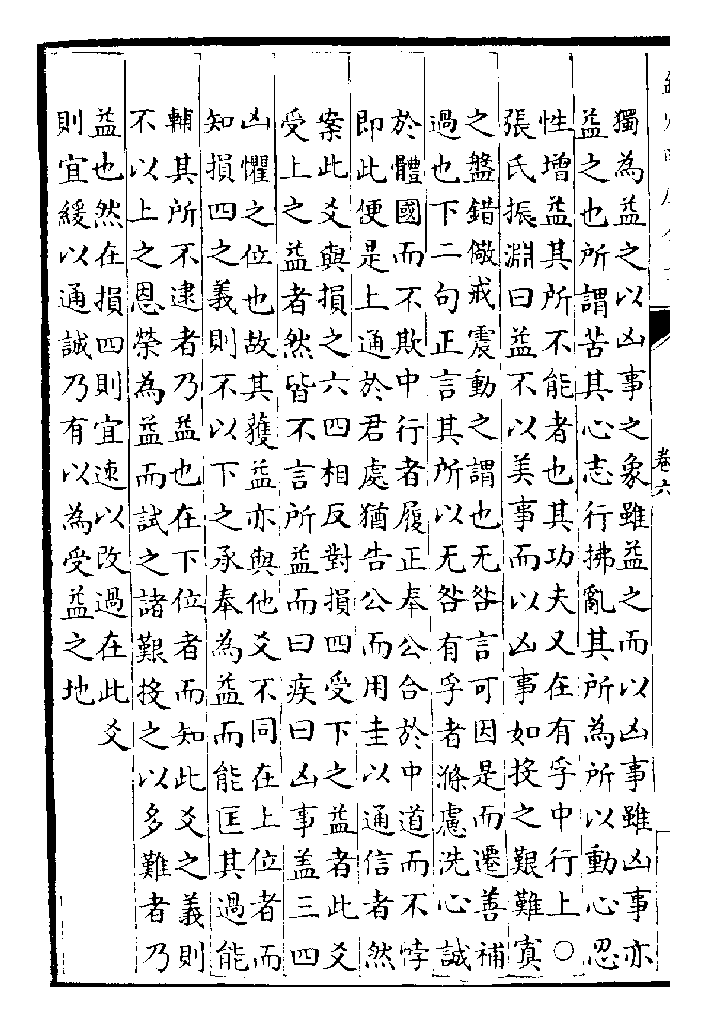 卷六
獨為益之以凶事之象雖益之而以凶事雖凶事亦
益之也所謂苦其心志行拂亂其所為所以動心忍
性增益其所不能者也其功夫又在有孚中行上○
張氏振淵曰益不以美事而以凶事如投之艱難寘
之盤錯儆戒震動之謂也无咎言可因是而遷善補
過也下二句正言其所以无咎有孚者滌慮洗心誠
於體國而不欺中行者履正奉公合於中道而不悖
即此便是上通於君處猶告公而用圭以通信者然
案此爻與損之六四相反對損四受下之益者此爻
受上之益者然皆不言所益而曰疾曰凶事盖三四
凶懼之位也故其獲益亦與他爻不同在上位者而
知損四之義則不以下之承奉為益而能匡其過能
輔其所不逮者乃益也在下位者而知此爻之義則
不以上之恩榮為益而試之諸艱投之以多難者乃
益也然在損四則宜速以改過在此爻
則宜緩以通誠乃有以為受益之地